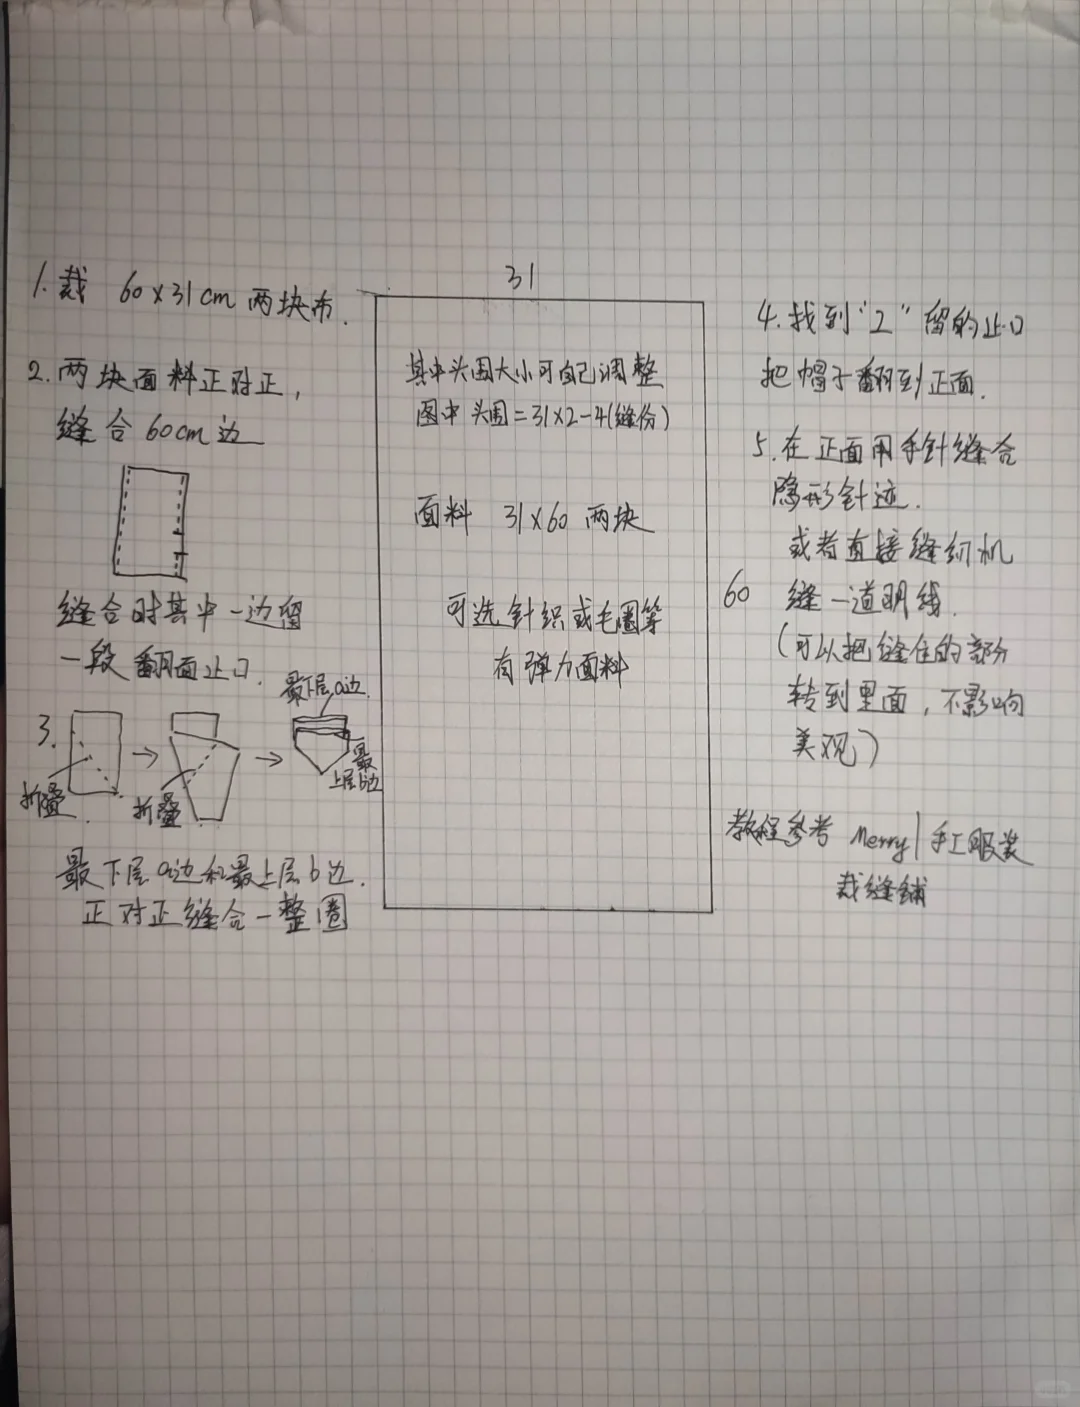 1. 裁 60×31cm 两块布.
2. 两块面料正对正,
缝合60cm边
缝合时其中一边留
一段翻面止口.
3.
折叠.
折叠.
最下层a边
最
上层b边
最下层a边和最上层b边.
正对正缝合一整圈
31
其中头围大小可自己调整
图中头围=31×2-4(缝份)
面料 31×60 两块
可选针织或毛圈等
有弹力面料
60
4. 找到“2”留的止口
把帽子翻到正面.
5. 在正面用手针缝合
隐形针迹.
或者直接缝纫机
缝一道明线.
(可以把缝住的部分
转到里面, 不影响
美观)
教程参考 Merry|手工服装
裁缝铺